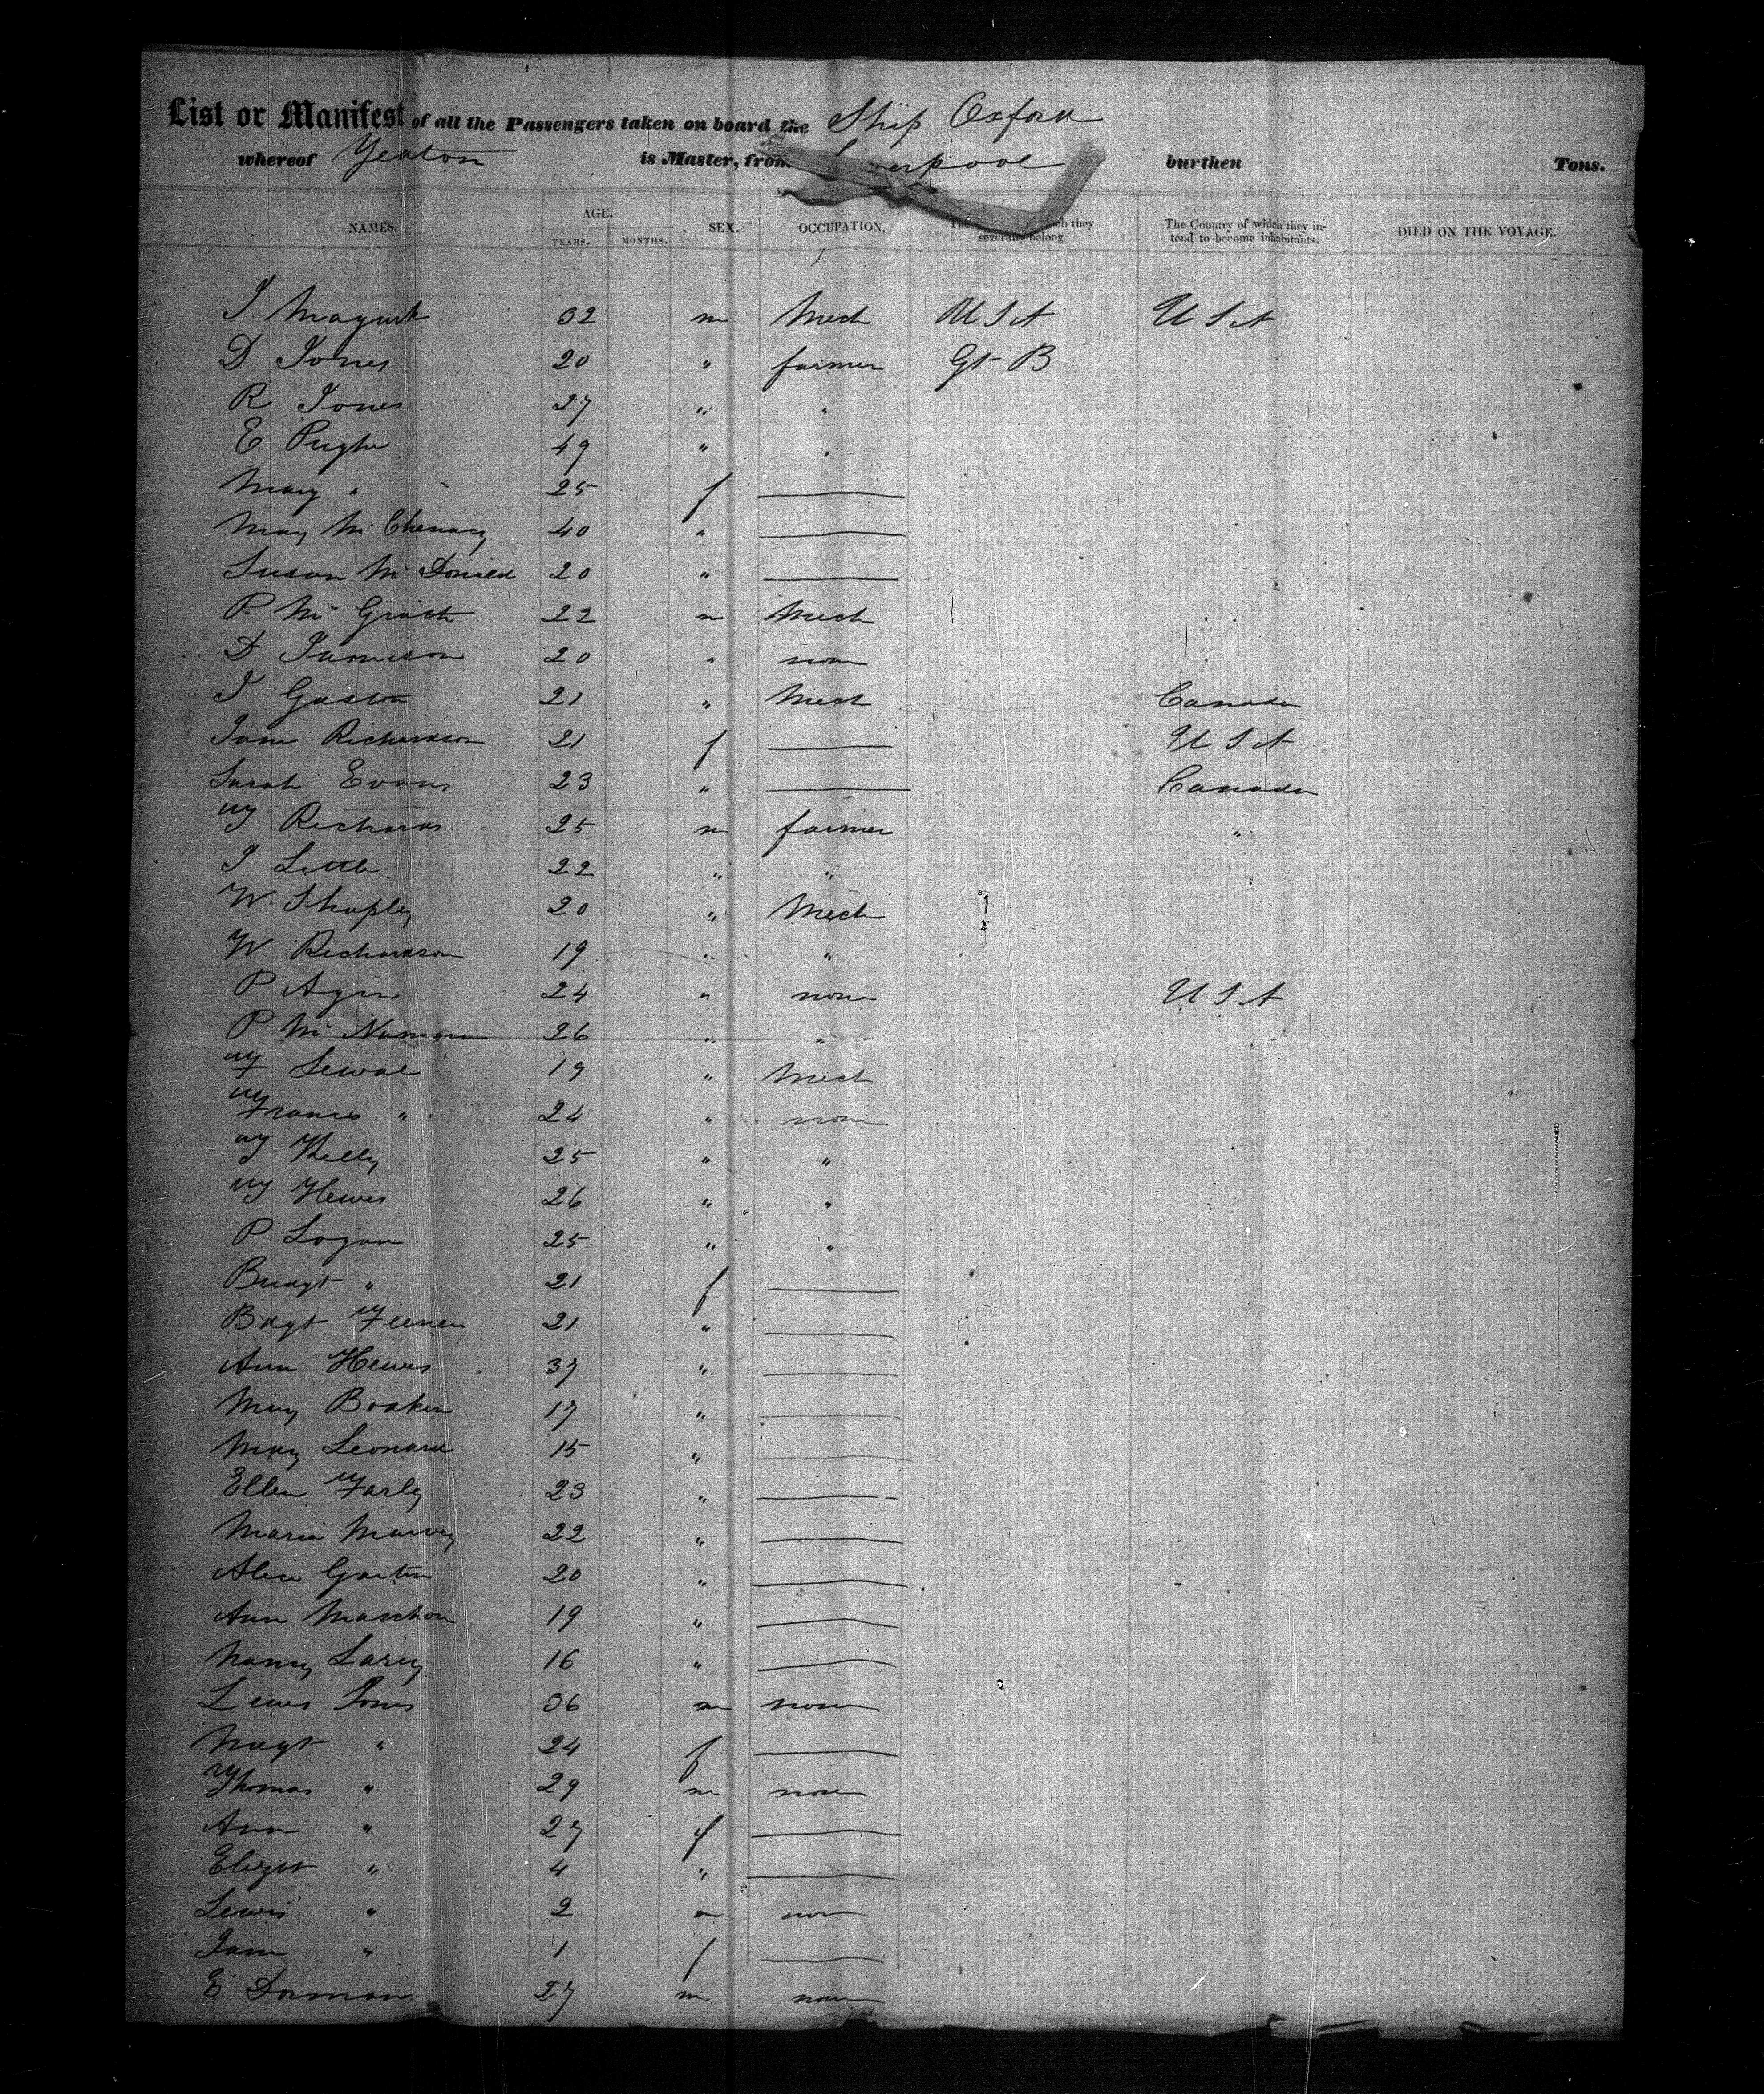 List or Manifest of all the Passengers taken on board the Ship Oxford
whereof Yeaton is Master, from Liverpool burthen Tons.
NAMES. AGE. YEARS. MONTHS. SEX. OCCUPATION. they severally belong The Country of which they intend to become inhabitants. DIED ON THE VOYAGE.
J. 32 m Mech U S A U S A
D Jones 20 " farmer Gt B
R Jones 27 " "
E Pugh 49 " "
Mary " 25 f
Mary Mc 40 "
Susan Mc Donald 20 "
P. Mc Grath 22 m Mech
D Jameson 20 " none
J Gaston 21 " Mech Canada
Jane Richardson 21 f U S A
Sarah Evans 23 " Canada
J Richards 25 m farmer "
J Little 22 " "
W. Shapley 20 " Mech
W Richardson 19 " "
P 24 " none U S A
P Mc Namara 26 " "
19 " Mech
Francis " 24 " none
Kelly 25 " "
Hewes 26 " "
P Logan 25 " "
Bridgt " 21 f
Bdgt 21 "
Ann Hewes 37 "
Mary 17 "
Mary Leonard 15 "
Ellen Farley 23 "
Maria 22 "
Alice 20 "
Ann 19 "
Nancy 16 "
Lewis Jones 36 m none
Magt " 24 f
Thomas " 29 m none
Ann " 27 f
Elizat " 4 "
Lewis " 2 m none
Jane " 1 f
E Dorman 27 m none